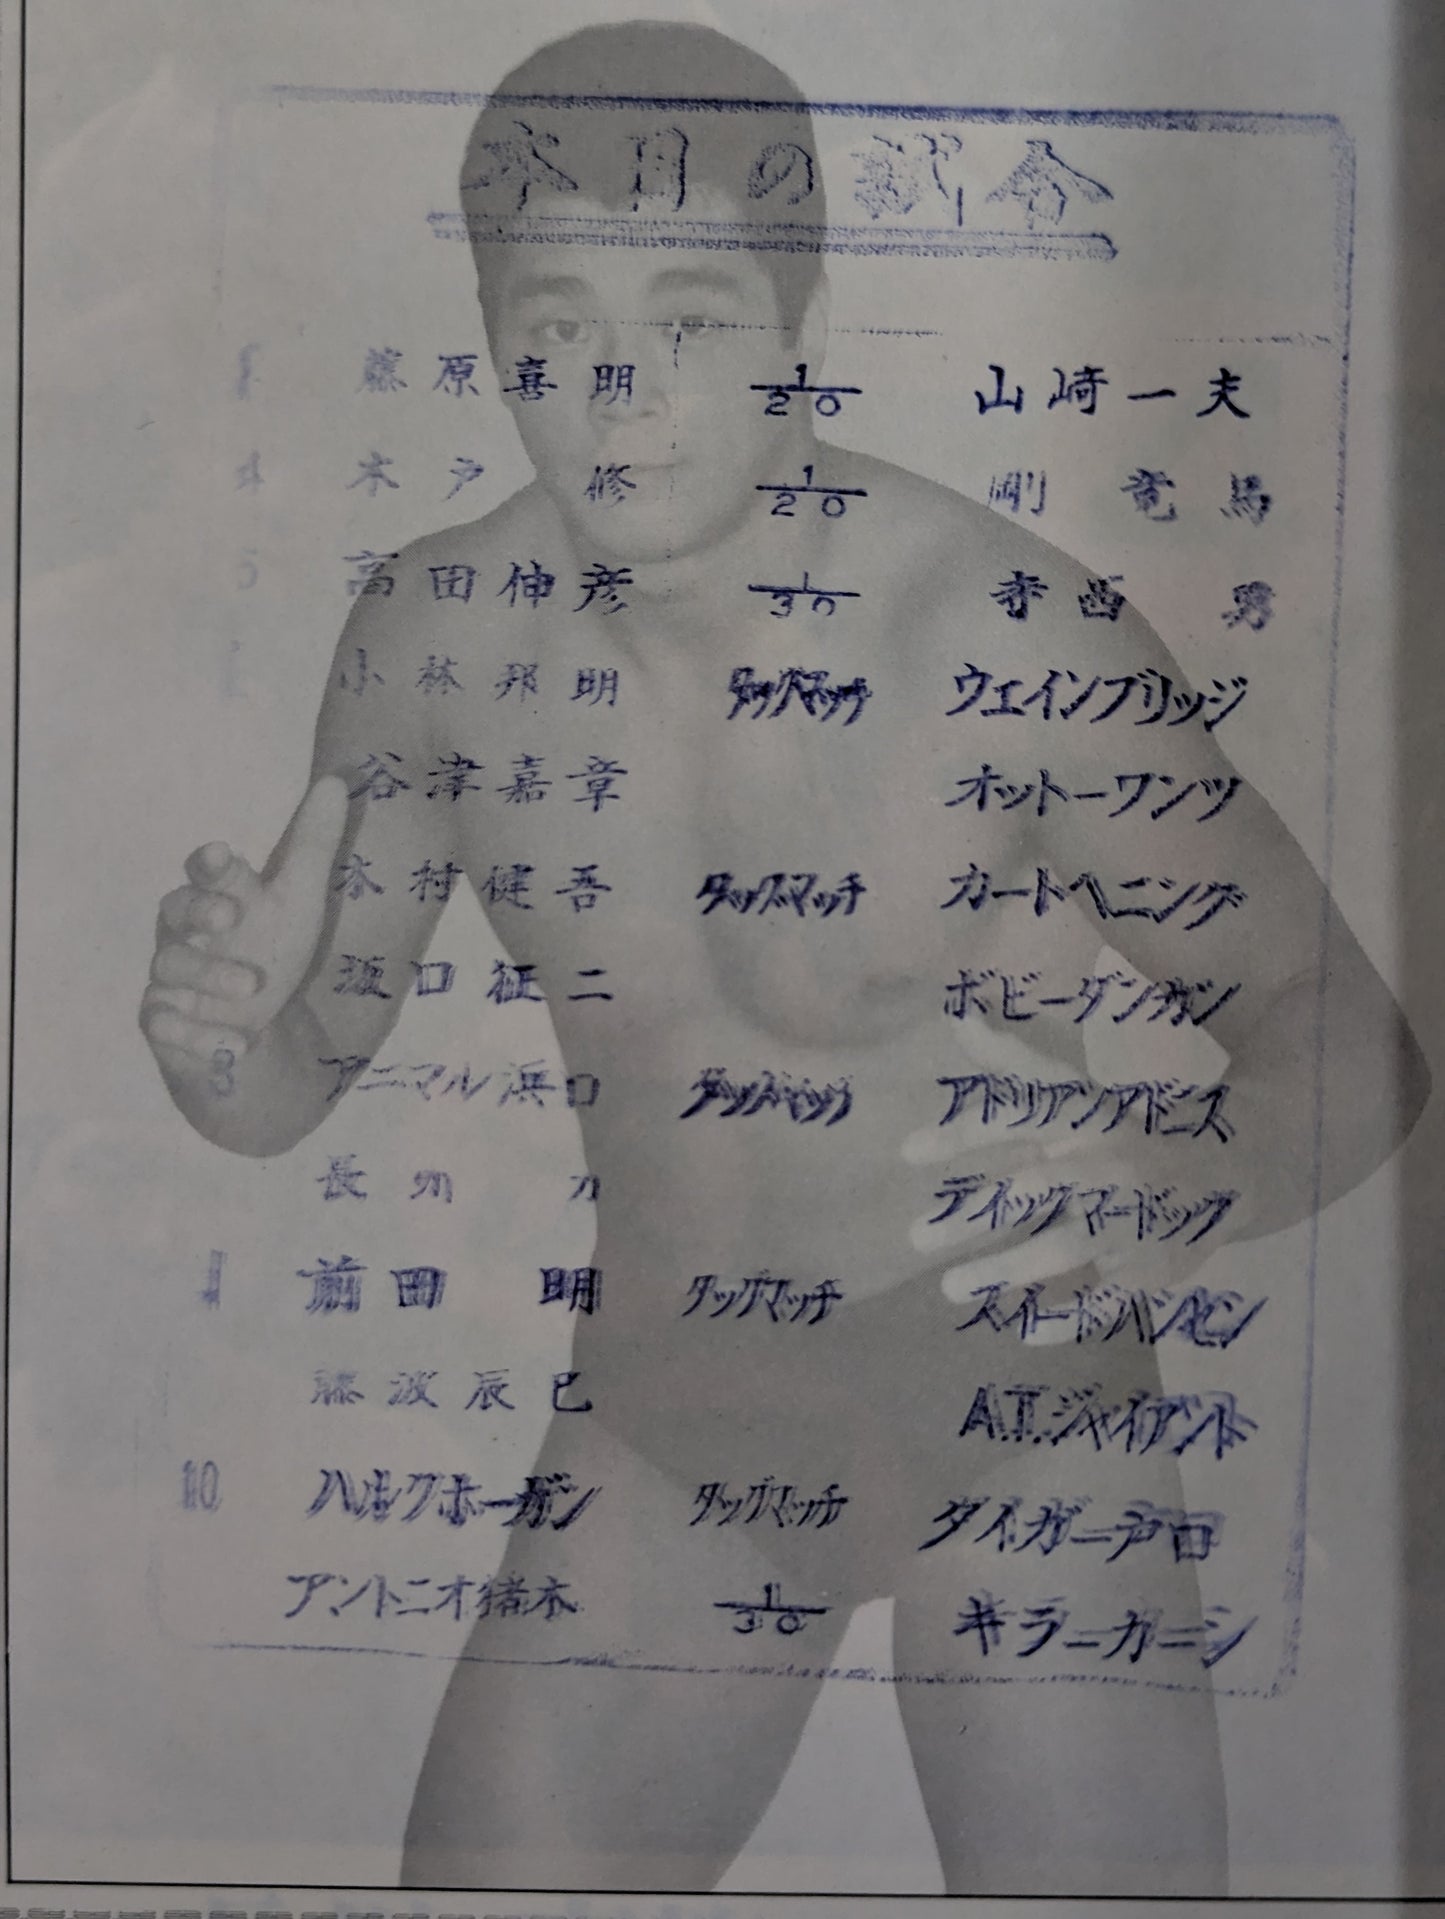 本日の試合
藤原喜明 1/20 山崎一夫
木戸 修 1/20 剛 竜馬
高田伸彦 1/30 寺西 勇
小林邦明 タッグマッチ ウエインブリッジ
谷津嘉章 オットーワンツ
木村健吾 タッグマッチ カートヘニング
坂口征二 ボビーダンカン
8 アニマル浜口 タッグマッチ アドリアンアドニス
長州 力 ディックマードック
前田 明 タッグマッチ スイードハンセン
藤波辰巳 A.T.ジャイアント
10 ハルクホーガン タッグマッチ タイガー戸口
アントニオ猪木 1/30 キラーカーン